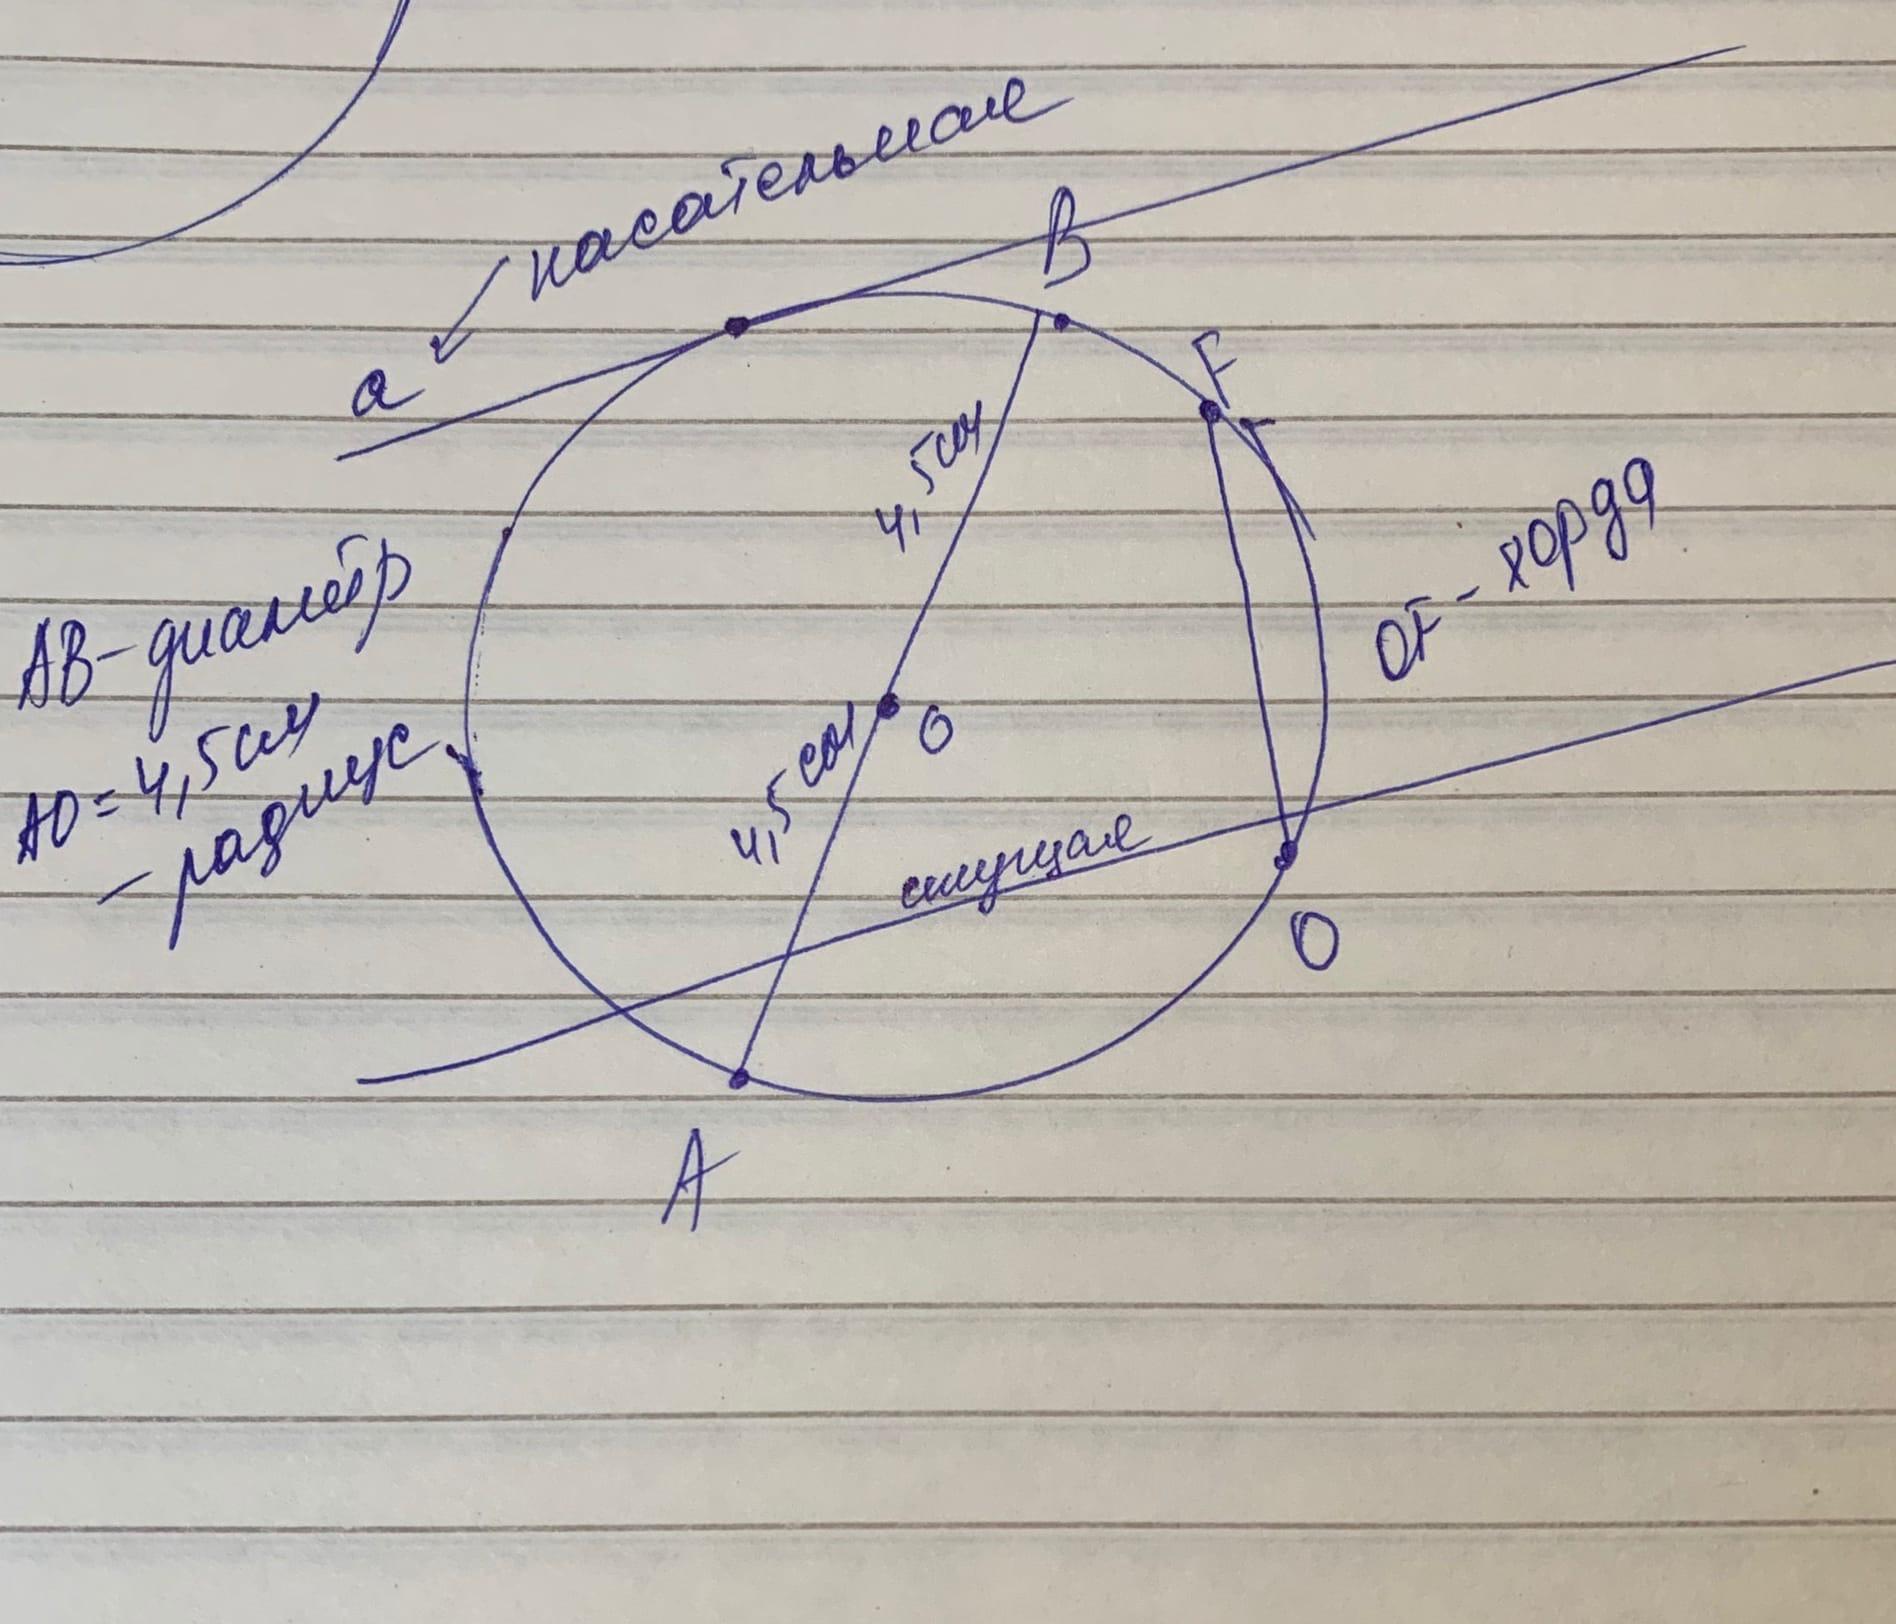 касательная
a
B
F
4,5см
AB-диаметр
OF - хорда
AO = 4,5см
- радиус
O
4,5см
секущая
O
A